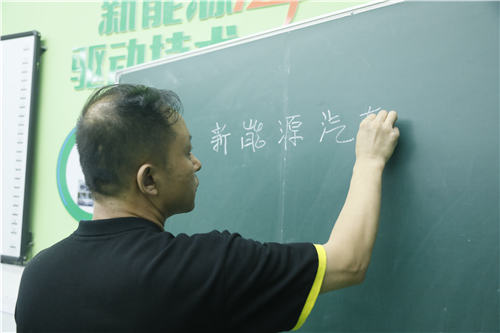 新能源
驱动技术
新能源汽